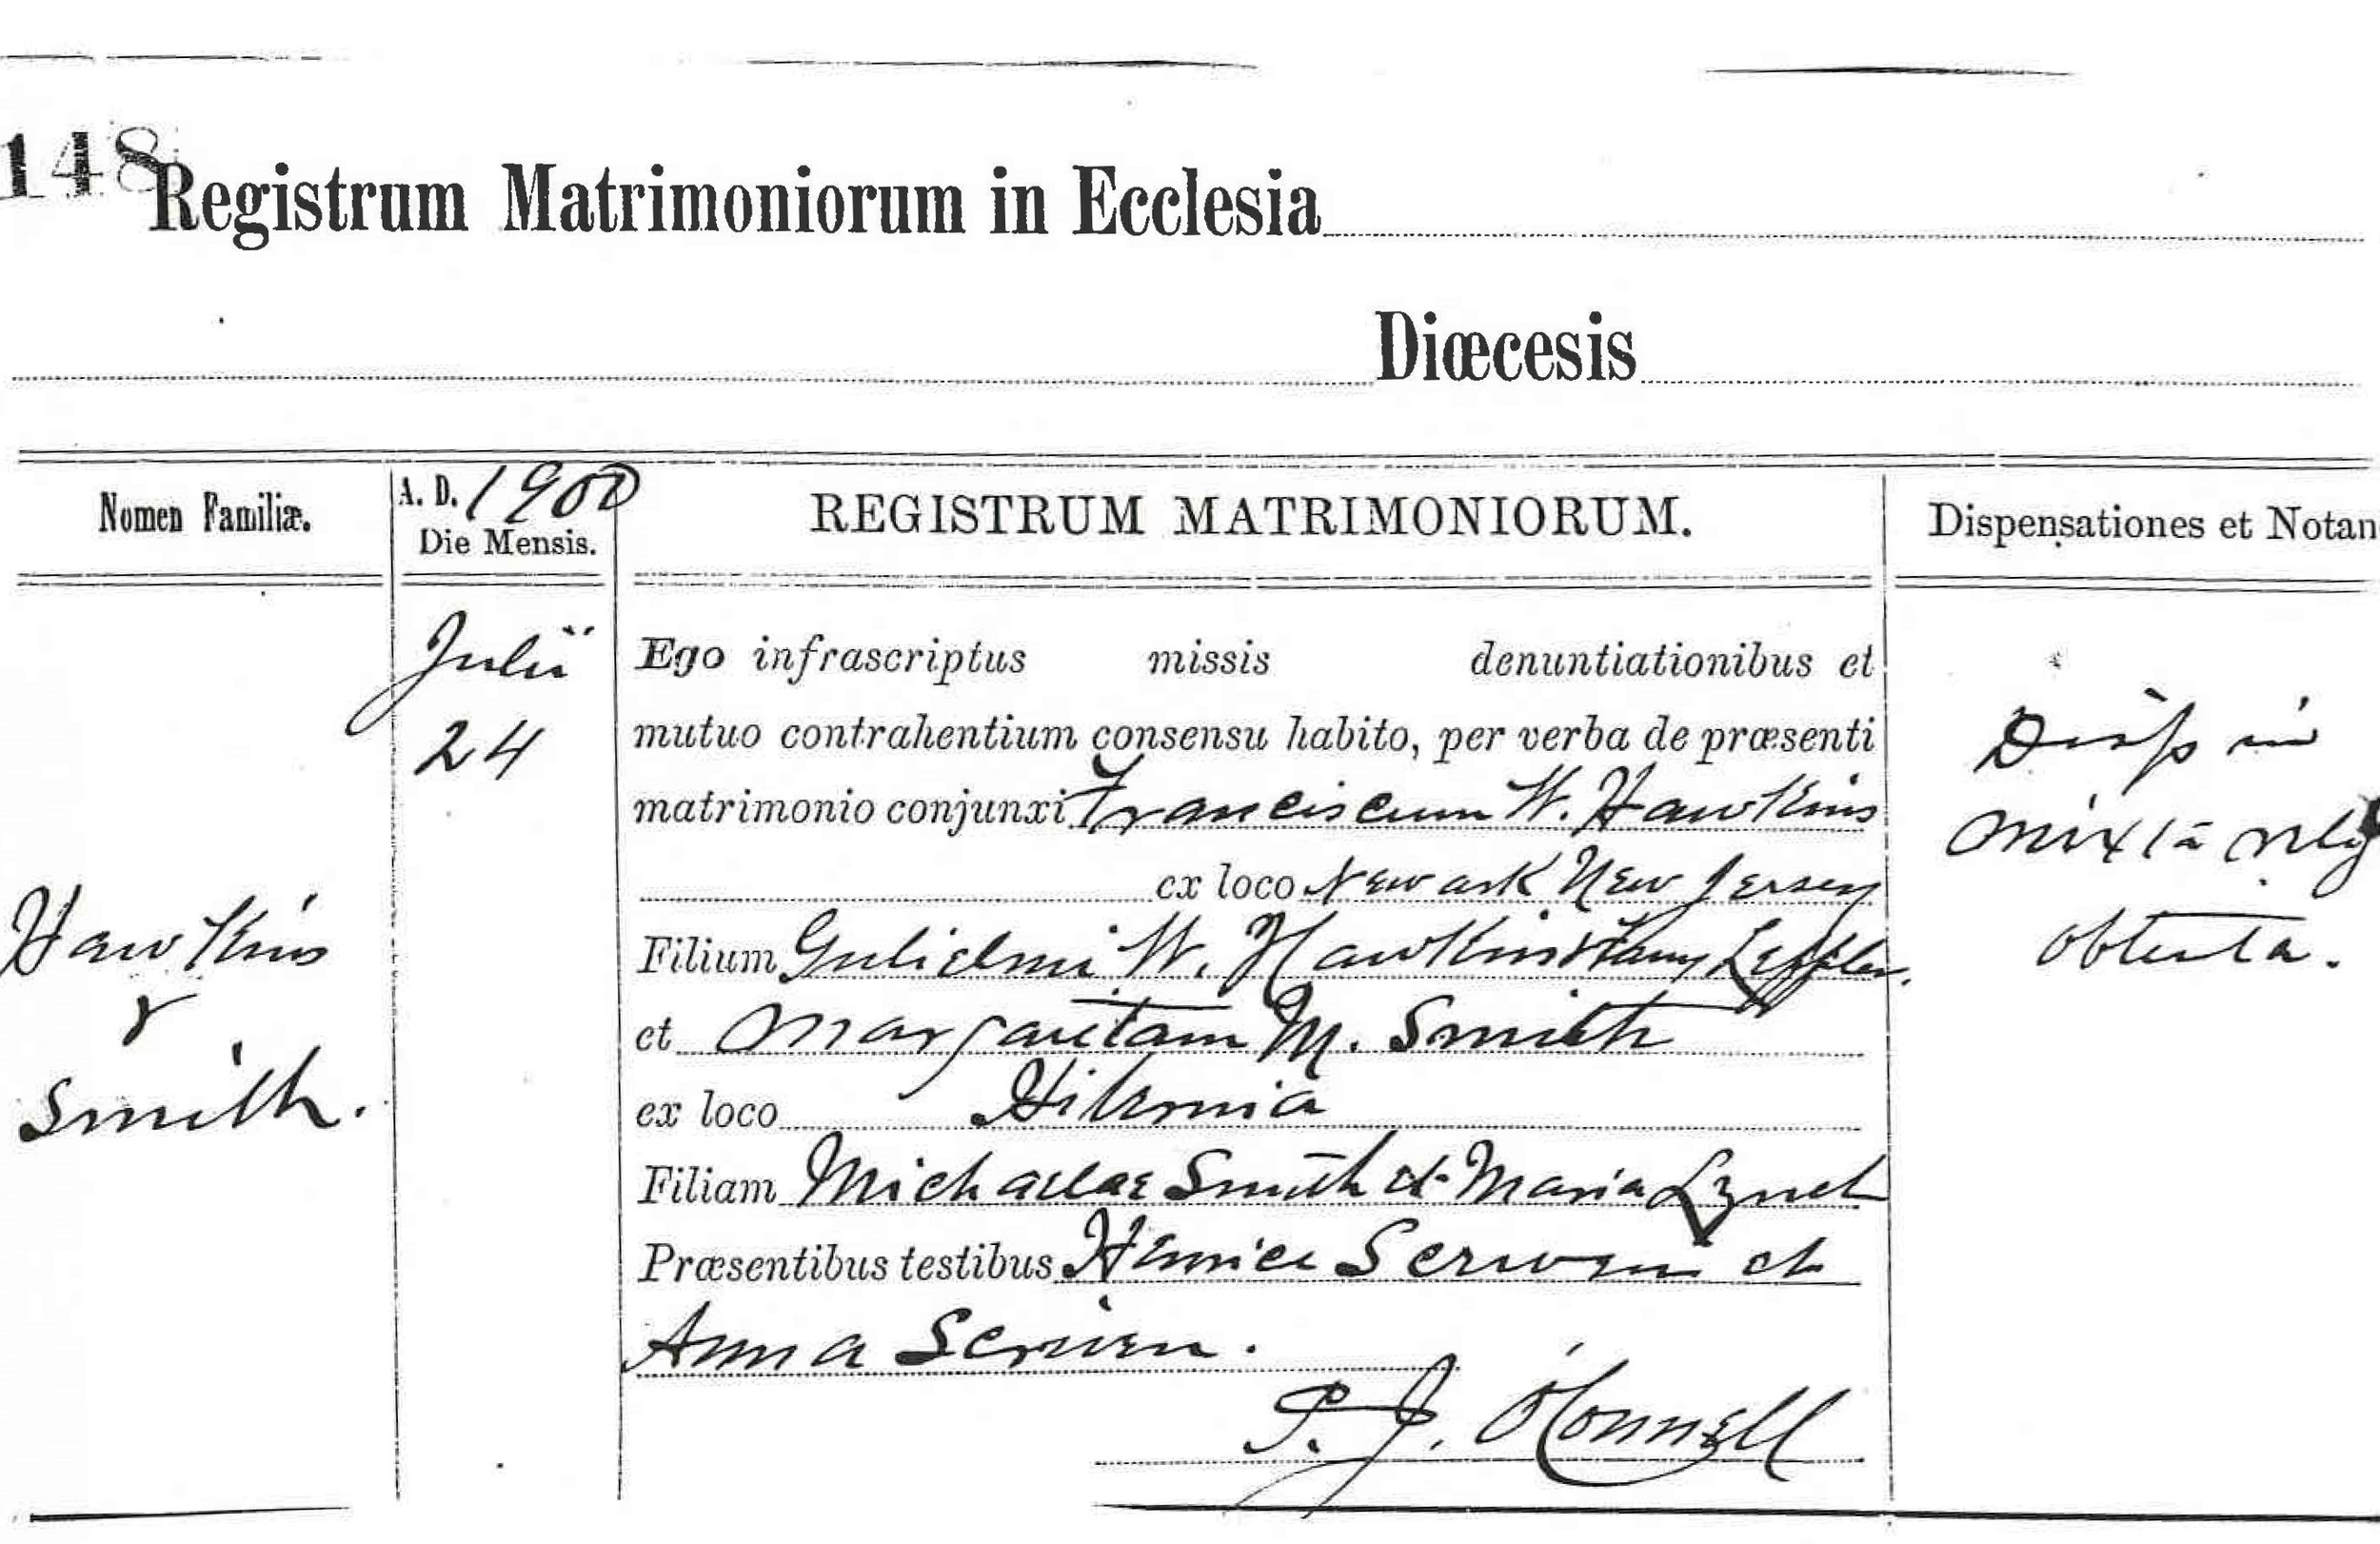 148
Registrum Matrimoniorum in Ecclesia
Diœcesis
Nomen Familiæ.
A. D. 1900
Die Mensis.
REGISTRUM MATRIMONIORUM.
Dispensationes et Notan
Hawkins
&
Smith.
Julii
24
Ego infrascriptus missis denuntiationibus et
mutuo contrahentium consensu habito, per verba de præsenti
matrimonio conjunxi Franciscum W. Hawkins
ex loco Newark New Jersey
Filium Gulielmi W. Hawkins & Leffler.
et Margaretam M. Smith
ex loco Hibernia
Filiam Michaelae Smith et Maria Lynch
Præsentibus testibus Henrice Scriven et
Anna Scriven.
P. J. O'Connell
Disp in
mixta relig
obtenta.